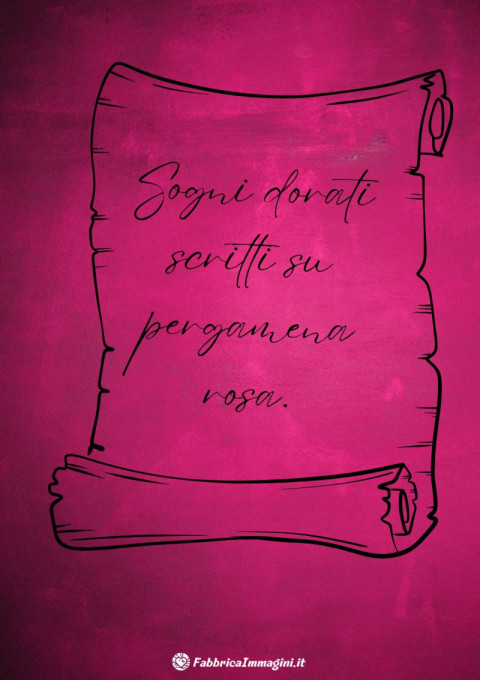 Sogni dorati
scritti su
pergamena
rosa.
FabbricaImmagini.it